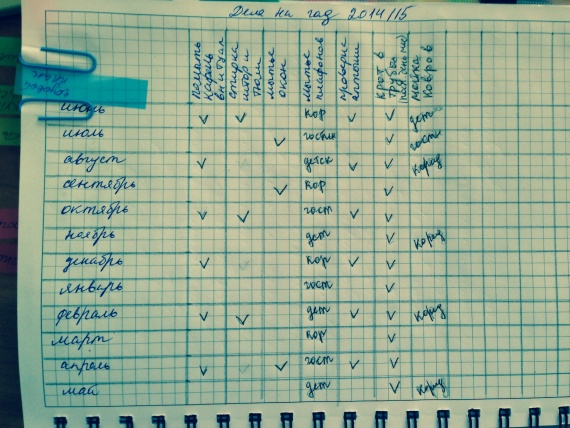 Дела на год 2014/15
помыть кафель в н и туал
стирка штор и тюли
мытье окон
мытье плафонов
проверка аптечки
крот в трубы
мойка ковров
июнь ✓ ✓ кор ✓ ✓ дет
июль ✓ гостин ✓ гост
август ✓ детск ✓ ✓ корид
сентябрь ✓ кор ✓
октябрь ✓ ✓ гост ✓ ✓
ноябрь дет ✓ корид
декабрь ✓ кор ✓ ✓
январь гост ✓
февраль ✓ ✓ дет ✓ ✓ корид
март кор ✓
апрель ✓ ✓ гост ✓ ✓
май дет ✓ корид